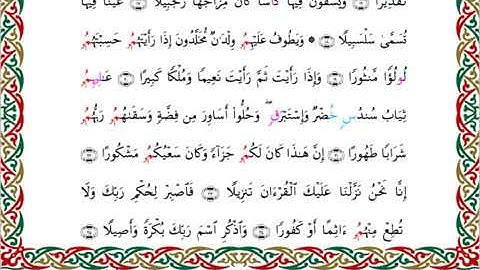 تَقْدِيرًا وَيُسْقَوْنَ فِيهَا كَأْسًا كَانَ مِزَاجُهَا زَنجَبِيلًا عَيْنًا فِيهَا
تُسَمَّىٰ سَلْسَبِيلًا ۞ وَيَطُوفُ عَلَيْهِمُ وِلْدَٰنٌ مُّخَلَّدُونَ إِذَا رَأَيْتَهُمُ حَسِبْتَهُمُ
لُولُؤًا مَّنثُورًا وَإِذَا رَأَيْتَ ثَمَّ رَأَيْتَ نَعِيمًا وَمُلْكًا كَبِيرًا عَٰلِيهِمُ
ثِيَابُ سُندُسٍ خُضْرٌ وَإِسْتَبْرَقٍ ۖ وَحُلُّوا أَسَاوِرَ مِن فِضَّةٍ وَسَقَىٰهُمُ رَبُّهُمُ
شَرَابًا طَهُورًا إِنَّ هَٰذَا كَانَ لَكُمُ جَزَآءً وَكَانَ سَعْيُكُمُ مَشْكُورًا
إِنَّا نَحْنُ نَزَّلْنَا عَلَيْكَ الْقُرْءَانَ تَنزِيلًا فَاصْبِرْ لِحُكْمِ رَبِّكَ وَلَا
تُطِعْ مِنْهُمُ ءَاثِمًا أَوْ كَفُورًا وَاذْكُرِ اسْمَ رَبِّكَ بُكْرَةً وَأَصِيلًا